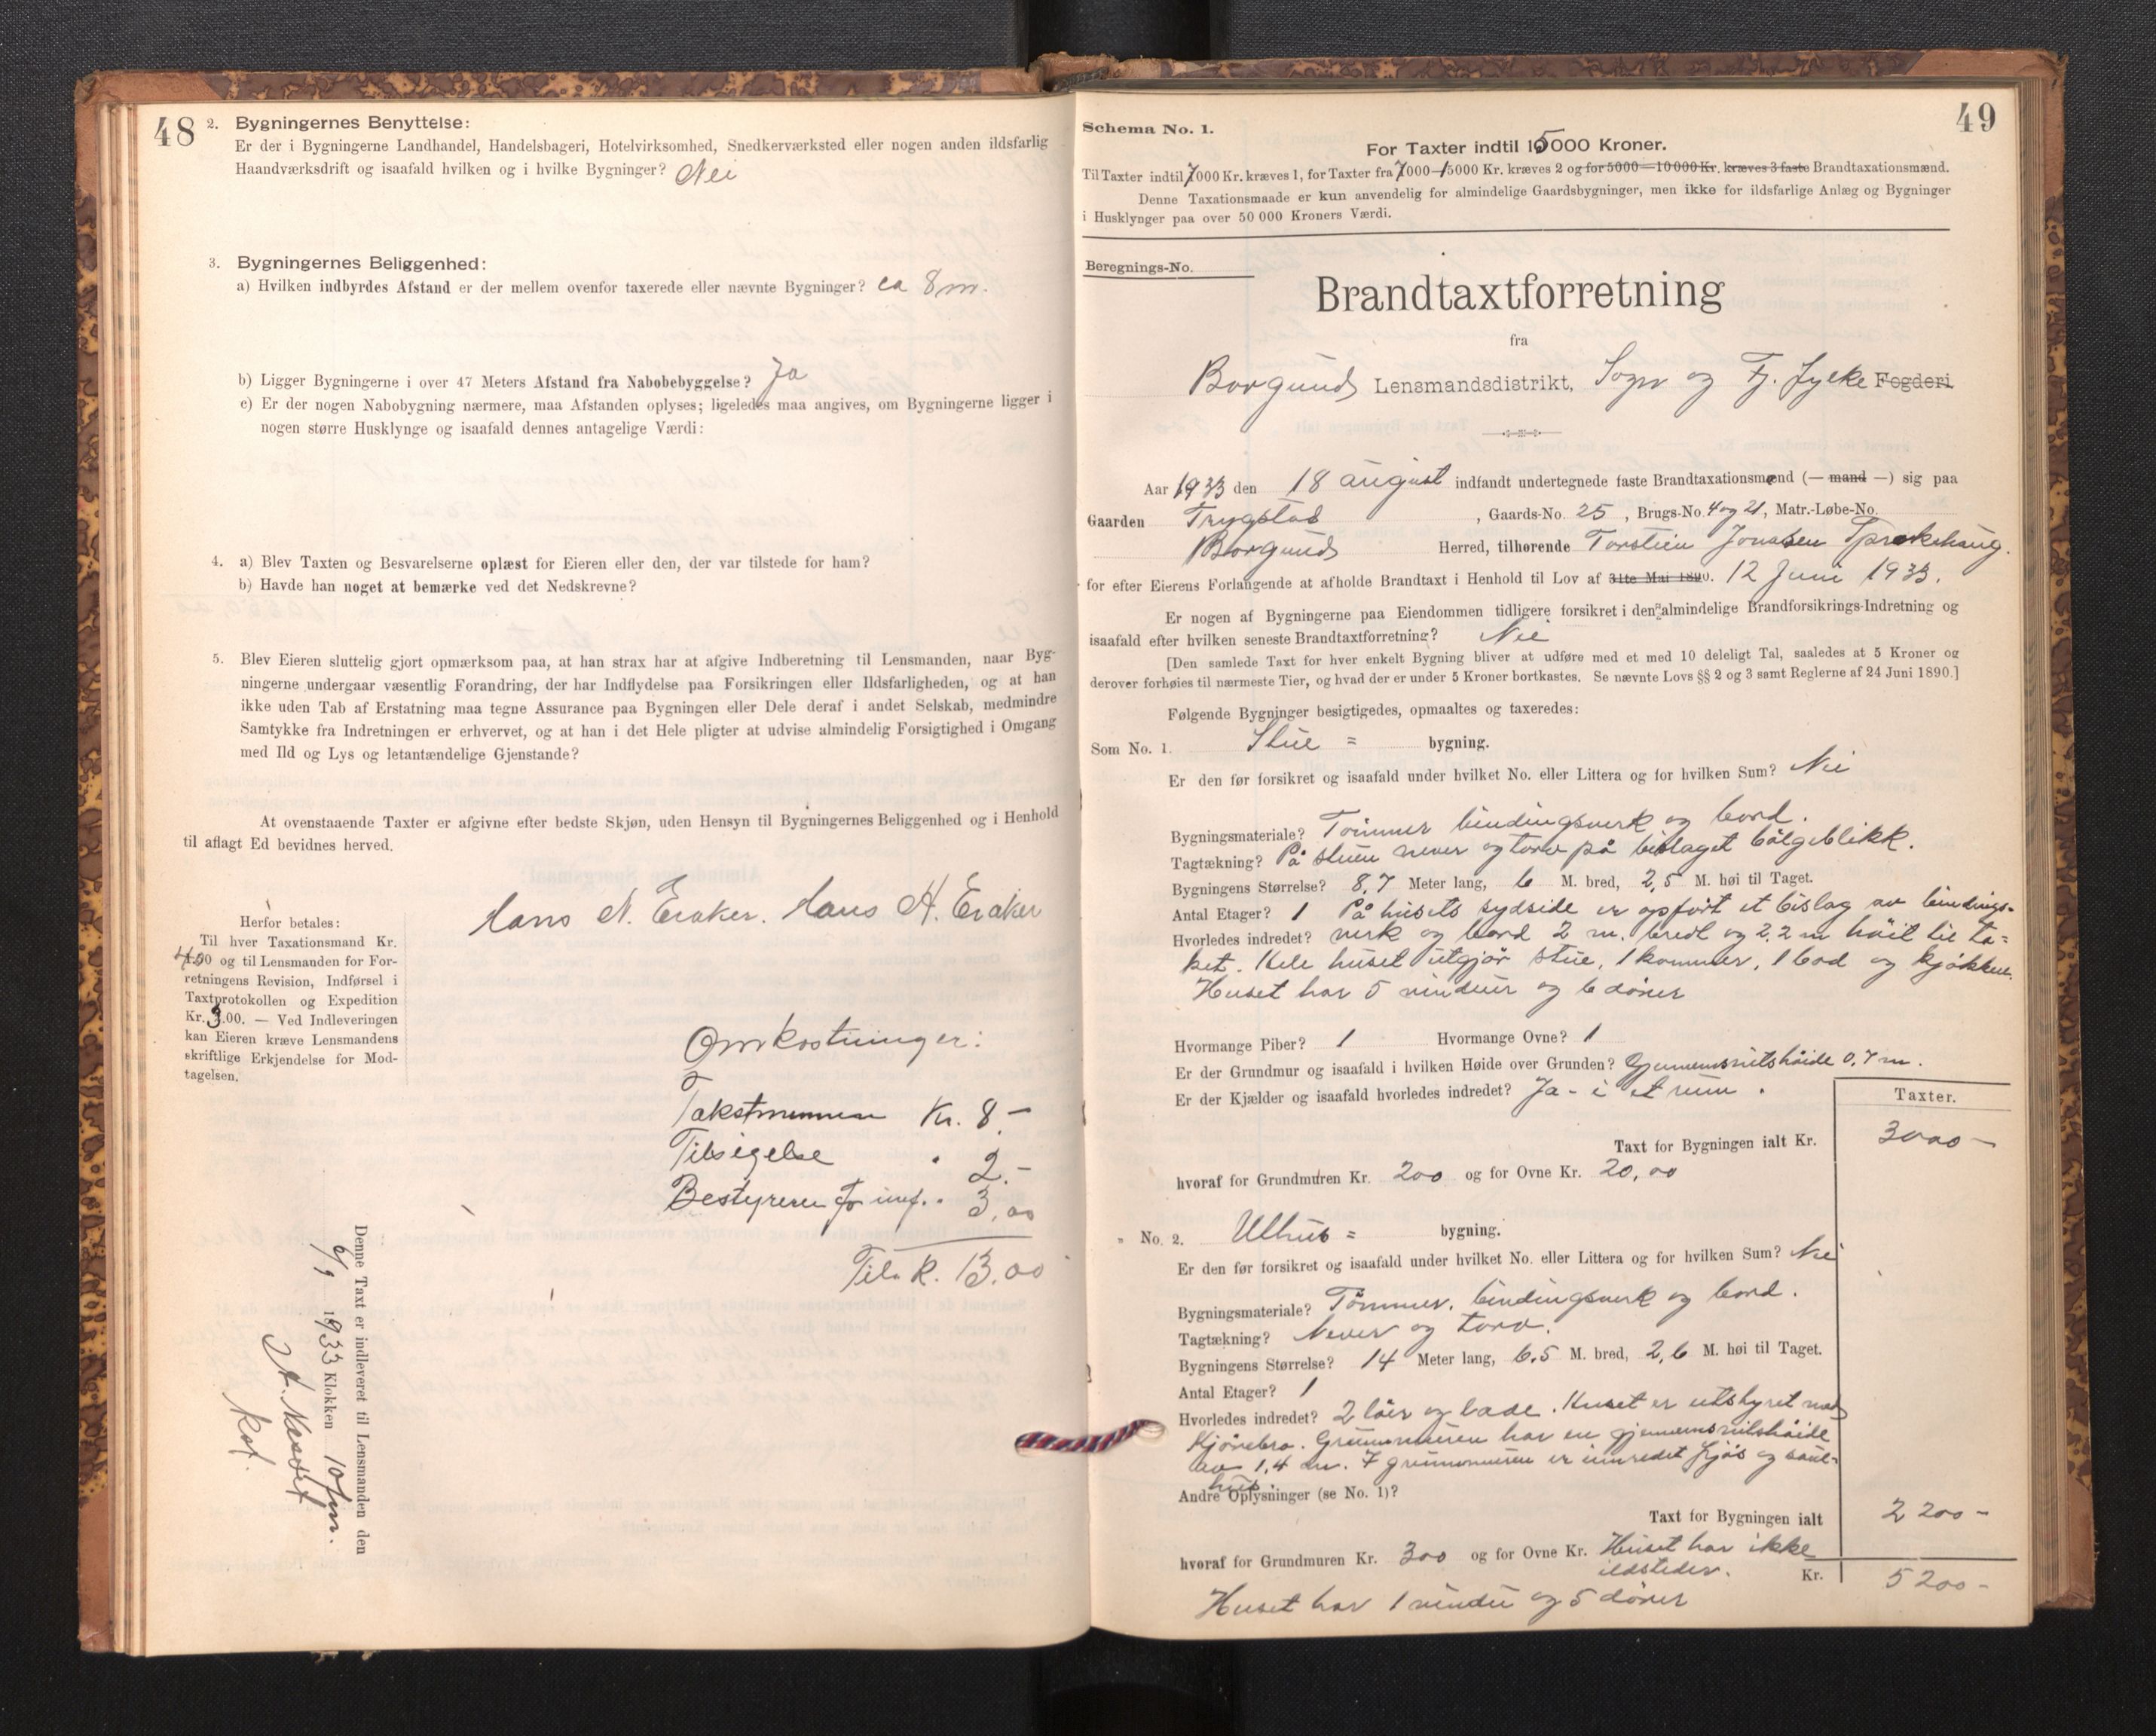 48
2. Bygningernes Benyttelse:
Er der i Bygningerne Landhandel, Handelsbageri, Hotelvirksomhed, Snedkerværksted eller nogen anden ildsfarlig
Haandværksdrift og isaafald hvilken og i hvilke Bygninger? Nei
3. Bygningernes Beliggenhed:
a) Hvilken indbyrdes Afstand er der mellem ovenfor taxerede eller nævnte Bygninger? ca 8 m.
b) Ligger Bygningerne i over 47 Meters Afstand fra Nabobebyggelse? Ja
c) Er der nogen Nabobygning nærmere, maa Afstanden oplyses; ligeledes maa angives, om Bygningerne ligger i
nogen større Husklynge og isaafald dennes antagelige Værdi:
4. a) Blev Taxten og Besvarelserne oplæst for Eieren eller den, der var tilstede for ham?
b) Havde han noget at bemærke ved det Nedskrevne?
5. Blev Eieren sluttelig gjort opmærksom paa, at han strax har at afgive Indberetning til Lensmanden, naar Byg-
ningerne undergaar væsentlig Forandring, der har Indflydelse paa Forsikringen eller Ildsfarligheden, og at han
ikke uden Tab af Erstatning maa tegne Assurance paa Bygningen eller Dele deraf i andet Selskab, medmindre
Samtykke fra Indretningen er erhvervet, og at han i det Hele pligter at udvise almindelig Forsigtighed i Omgang
med Ild og Lys og letantændelige Gjenstande?
At ovenstaaende Taxter er afgivne efter bedste Skjøn, uden Hensyn til Bygningernes Beliggenhed og i Henhold
til aflagt Ed bevidnes herved.
Hans N. Eraker. Hans H. Eraker
Herfor betales:
Til hver Taxationsmand Kr.
4.00 og til Lensmanden for For-
retningens Revision, Indførsel i
Taxtprotokollen og Expedition
Kr. 3.00. — Ved Indleveringen
kan Eieren kræve Lensmandens
skriftlige Erkjendelse for Mod-
tagelsen.
Omkostninger:
Takstmennene Kr. 8,-
Tilsigelse " 2.-
Bestyreren for innf. " 3,00
Tils. k. 13.00
Denne Taxt er indleveret til Lensmanden den
6/9 1933 Klokken 10 fm.
49
Schema No. 1.
For Taxter indtil 15000 Kroner.
Til Taxter indtil 7000 Kr. kræves 1, for Taxter fra 7000—15000 Kr. kræves 2 og for 5000—10000 Kr. kræves 3 faste Brandtaxationsmænd.
Denne Taxationsmaade er kun anvendelig for almindelige Gaardsbygninger, men ikke for ildsfarlige Anlæg og Bygninger
i Husklynger paa over 50 000 Kroners Værdi.
Beregnings-No.
Brandtaxtforretning
fra
Borgund Lensmandsdistrikt, Sogn og Fj. fylke Fogderi
Aar 1933 den 18 august indfandt undertegnede faste Brandtaxationsmænd (— mand —) sig paa
Gaarden Trygstad, Gaards-No. 25, Brugs-No. 4 og 21, Matr.-Løbe-No.
Borgund Herred, tilhørende Torstein Jonasen Sprakehaug.
for efter Eierens Forlangende at afholde Brandtaxt i Henhold til Lov af 31te Mai 1890. 12 Juni 1933.
Er nogen af Bygningerne paa Eiendommen tidligere forsikret i den almindelige Brandforsikrings-Indretning og
isaafald efter hvilken seneste Brandtaxtforretning? Nei
[Den samlede Taxt for hver enkelt Bygning bliver at udføre med et med 10 deleligt Tal, saaledes at 5 Kroner og
derover forhøies til nærmeste Tier, og hvad der er under 5 Kroner bortkastes. Se nævnte Lovs §§ 2 og 3 samt Reglerne af 24 Juni 1890.]
Følgende Bygninger besigtigedes, opmaaltes og taxeredes:
Som No. 1. Stue = bygning.
Er den før forsikret og isaafald under hvilket No. eller Littera og for hvilken Sum? Nei
Bygningsmateriale? Tømmer bindingsverk og bord.
Tagtækning? På stuen never og torv på bislaget bølgeblikk.
Bygningens Størrelse? 8,7 Meter lang, 6 M. bred, 2,5 M. høi til Taget.
Antal Etager? 1 På husets sydside er opført et bislag av bindings-
Hvorledes indredet? verk og bord 2 m. bredt og 2,2 m høit til ta-
ket. Hele huset utgjør stue, 1 kammer, 1 bod og kjøkken.
Huset har 5 vinduer og 6 dører
Hvormange Piber? 1 Hvormange Ovne? 1
Er der Grundmur og isaafald i hvilken Høide over Grunden? Gjennemsnitshøide 0,7 m.
Er der Kjælder og isaafald hvorledes indredet? Ja - i et rum.
Taxter.
Taxt for Bygningen ialt Kr. 3000 —
hvoraf for Grundmuren Kr. 200 og for Ovne Kr. 20,00
" No. 2. Uthus = bygning.
Er den før forsikret og isaafald under hvilket No. eller Littera og for hvilken Sum? Nei
Bygningsmateriale? Tømmer, bindingsverk og bord.
Tagtækning? Never og torv.
Bygningens Størrelse? 14 Meter lang, 6,5 M. bred, 2,6 M. høi til Taget.
Antal Etager? 1
Hvorledes indredet? 2 løer og lade. Huset er utstyret med
kjørebro. Grunnmuren har en gjennemsnitshøide
av 1,4 m. I grunnmuren er innredet fjøs og saue-
hus.
Andre Oplysninger (se No. 1)?
Taxt for Bygningen ialt 2 200 -
hvoraf for Grundmuren Kr. 300 og for Ovne Kr. Huset har ikke
ildsteder.
Kr. 5 200 -
Huset har 1 vindu og 5 dører